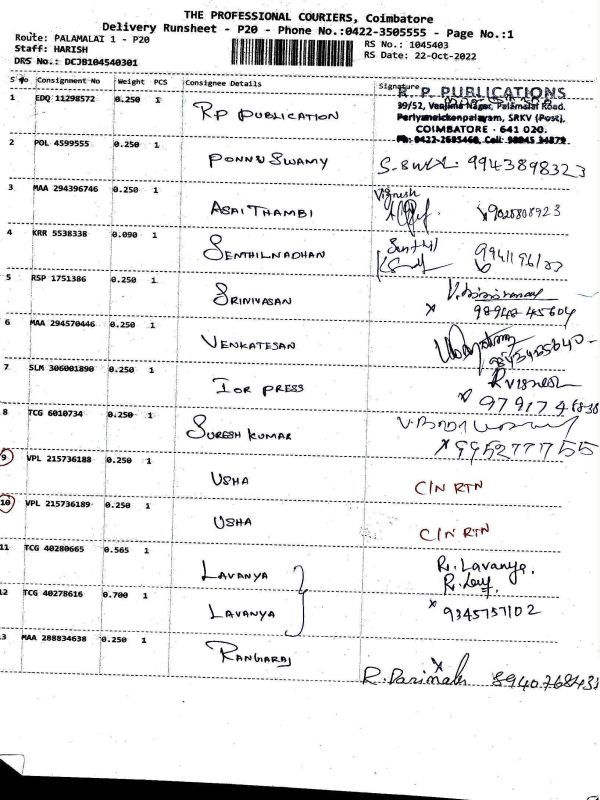 THE PROFESSIONAL COURIERS, Coimbatore
Delivery Runsheet - P20 - Phone No.:0422-3505555 - Page No.:1
Route: PALAMALAI 1 - P20
RS No.: 1045403
Staff: HARISH
RS Date: 22-Oct-2022
DRS No.: DCJB104540301
S No Consignment No Weight PCS Consignee Details Signature
R. P. PUBLICATIONS
39/52, Vanjima Nagar, Palamalai Road.
Periyanaickenpalayam, SRKV (Post).
COIMBATORE - 641 020.
1 EDQ 11298572 0.250 1 RP PUBLICATION
2 POL 4599555 0.250 1 PONNU SWAMY 9943898323
3 MAA 294396746 0.250 1 ASAI THAMBI Vignesh
4 KRR 5538338 0.090 1 SENTHILNADHAN Senthil
5 RSP 1751386 0.250 1 SRINIVASAN
x 98942 45604
6 MAA 294570446 0.250 1 VENKATESAN
7 SLM 306001890 0.250 1 IOR PRESS R Vignesh
8 TCG 6010734 0.250 1 SURESH KUMAR
x 9952777755
9 VPL 215736188 0.250 1 USHA C/N RTN
10 VPL 215736189 0.250 1 USHA C/N RTN
11 TCG 40280665 0.565 1 LAVANYA R. Lavanya.
12 TCG 40278616 0.700 1 LAVANYA x 9345757102
3 MAA 288834638 0.250 1 RANGARAJ